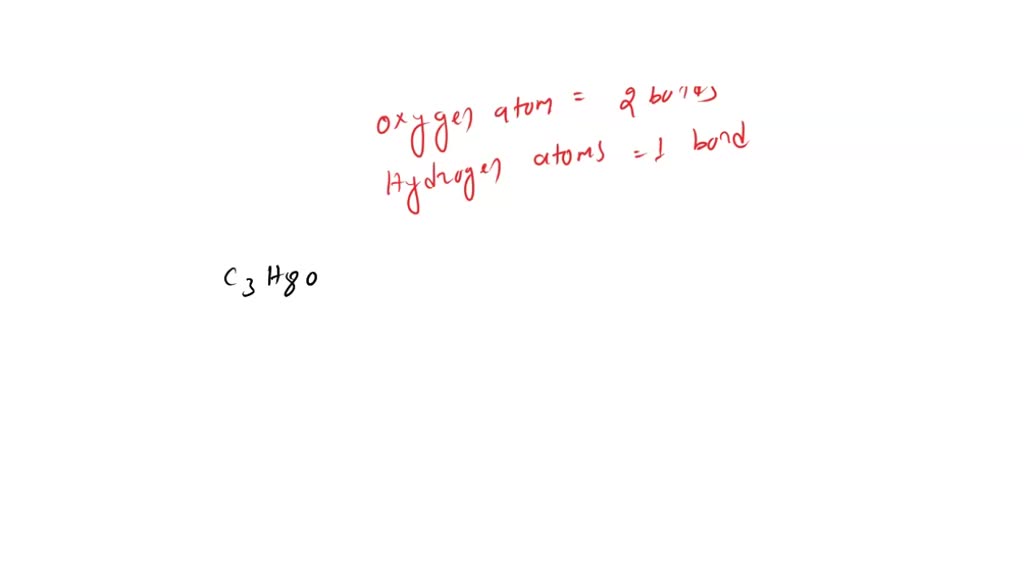 oxygen atom = 2 bonds
Hydrogen atoms = 1 bond
C3H8O